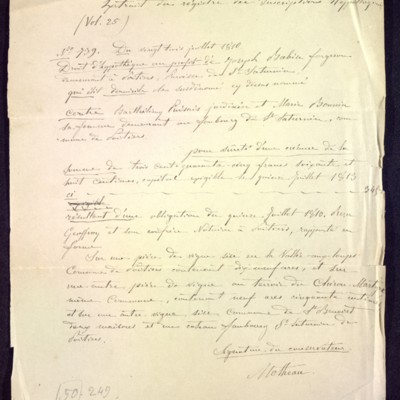 Extrait du registre des Inscriptions hypothécaires
(Vol. 25)
N° 739. Du vingt trois juillet 1810
Droit d'hypothèque au profit de Joseph Babin
demeurant à Poitiers, Paroisse de St Saturnin
qui élit domicile
contre Barthélemy jardinier et Marie Bonnin
sa femme demeurant au faubourg de St Saturnin, com-
mune de Poitiers
pour sûreté d'une créance de la
somme de trois cent quarante cinq francs soixante et
huit centimes, capital exigible le quinze Juillet 1813
ci 345
résultant d'une obligation du quinze Juillet 1810, devant
Geoffroy et son confrère Notaires à Poitiers, rapportée en
forme
Sur une pièce de vigne sise en la Vallée
Commune de Poitiers contenant ares, et sur
une autre pièce de vigne au terroir du
même Commune, contenant neuf ares cinquante centiares
et sur une autre vigne sise commune de St Benoist
deux maisons et un faubourg St Saturnin de
Poitiers.
Signature du conservateur
(50) 249